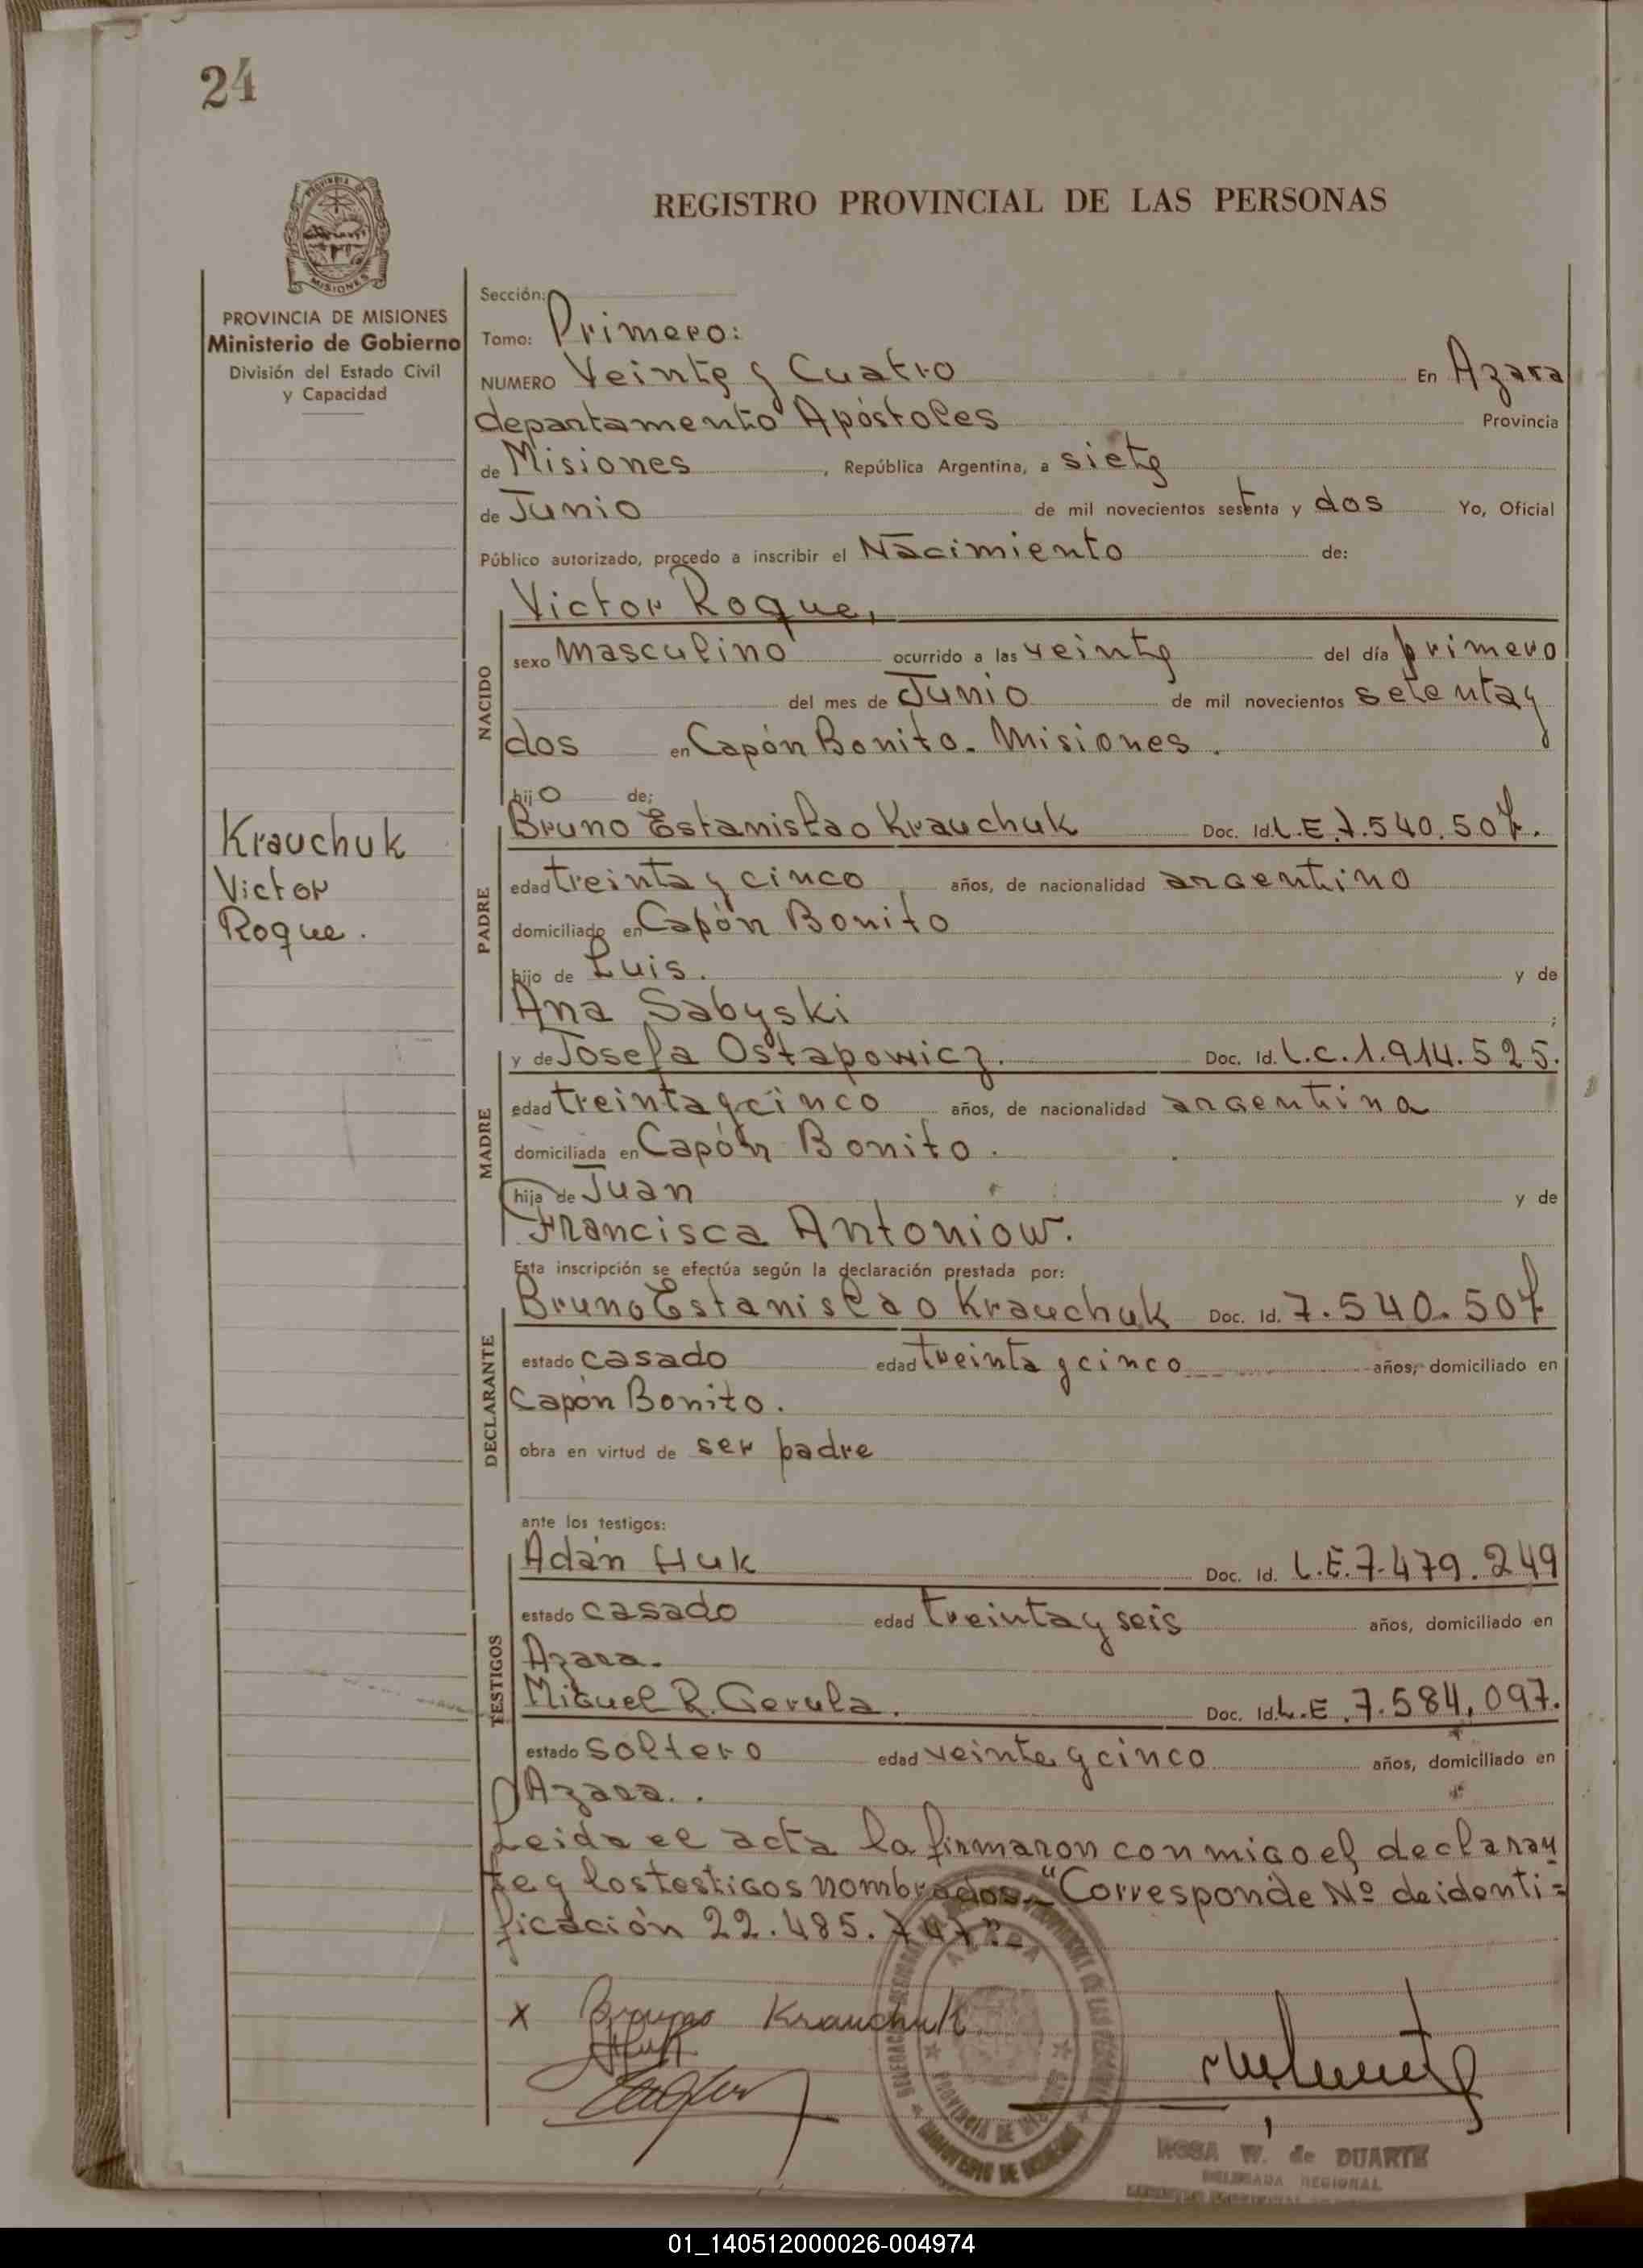 24
REGISTRO PROVINCIAL DE LAS PERSONAS
MISIONES
PROVINCIA DE MISIONES
Ministerio de Gobierno
División del Estado Civil
y Capacidad
Krauchuk
Victor
Roque.
Sección:
Tomo: Primero:
NUMERO Veinte y Cuatro En Azara
departamento Apóstoles Provincia
de Misiones, República Argentina, a siete
de Junio de mil novecientos setenta y dos Yo, Oficial
Público autorizado, procedo a inscribir el Nacimiento de:
NACIDO
Victor Roque,
sexo masculino ocurrido a las veinte del día primero
del mes de Junio de mil novecientos setenta y
dos en Capón Bonito. Misiones.
hijo de;
PADRE
Bruno Estanislao Krauchuk Doc. Id. L.E. 7.540.507.
edad treinta y cinco años, de nacionalidad argentino
domiciliado en Capón Bonito
hijo de Luis. y de
Ana Sabyski ;
MADRE
y de Josefa Ostapowicz. Doc. Id. L.C. 1.914.525.
edad treinta y cinco años, de nacionalidad argentina
domiciliada en Capón Bonito.
hija de Juan y de
Francisca Antoniow.
Esta inscripción se efectúa según la declaración prestada por:
DECLARANTE
Bruno Estanislao Krauchuk Doc. Id. 7.540.507
estado casado edad treinta y cinco años, domiciliado en
Capón Bonito.
obra en virtud de ser padre
ante los testigos:
TESTIGOS
Adán Huk Doc. Id. L.E. 7.479.249
estado casado edad treinta y seis años, domiciliado en
Azara.
Miguel R. Gerula. Doc. Id. L.E. 7.584,097.
estado soltero edad veinte y cinco años, domiciliado en
Azara..
Leida el acta la firmaron conmigo el declaran
te y los testigos nombrados.- "Corresponde Nº de identi=
ficación 22.485.747".-
x Bruno Krauchuk
Huk
AZARA
PROVINCIA DE MISIONES
MINISTERIO DE GOBIERNO
ROSA W. de DUARTE
DELEGADA REGIONAL
01_140512000026-004974